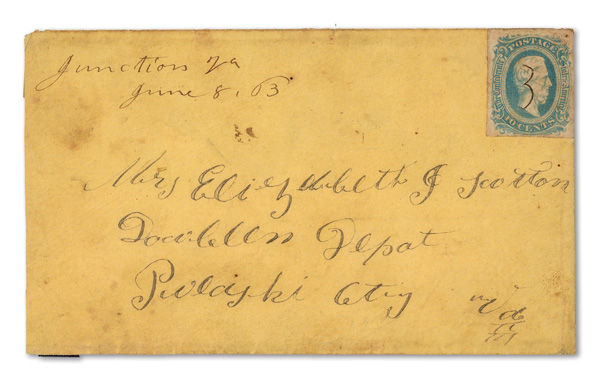 Junction Va
June 8, 63
POSTAGE
The Confederate States of America
3
10 CENTS
Mrs Eliezebeth J Scotton
Doublin Depat
Pulaski Cty Va